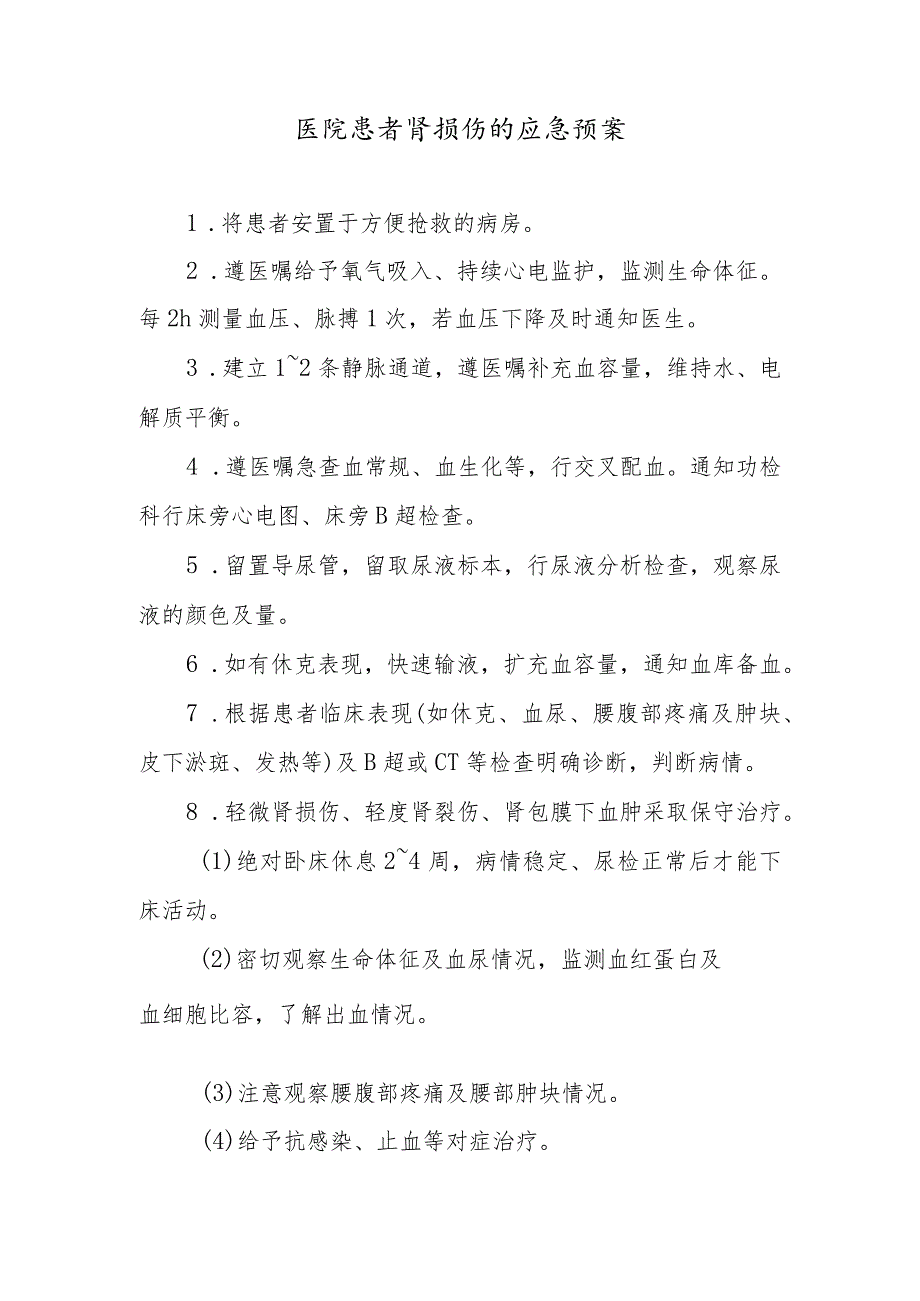 医院患者肾损伤的应急预案
1 .将患者安置于方便抢救的病房。
2 .遵医嘱给予氧气吸入、持续心电监护，监测生命体征。
每2h测量血压、脉搏1次，若血压下降及时通知医生。
3 .建立1~2条静脉通道，遵医嘱补充血容量，维持水、电
解质平衡。
4 .遵医嘱急查血常规、血生化等，行交叉配血。通知功检
科行床旁心电图、床旁B超检查。
5 .留置导尿管，留取尿液标本，行尿液分析检查，观察尿
液的颜色及量。
6 .如有休克表现，快速输液，扩充血容量，通知血库备血。
7 .根据患者临床表现(如休克、血尿、腰腹部疼痛及肿块、
皮下淤斑、发热等)及B超或CT等检查明确诊断，判断病情。
8 .轻微肾损伤、轻度肾裂伤、肾包膜下血肿采取保守治疗。
(1)绝对卧床休息2~4周，病情稳定、尿检正常后才能下
床活动。
(2)密切观察生命体征及血尿情况，监测血红蛋白及
血细胞比容，了解出血情况。
(3)注意观察腰腹部疼痛及腰部肿块情况。
(4)给予抗感染、止血等对症治疗。